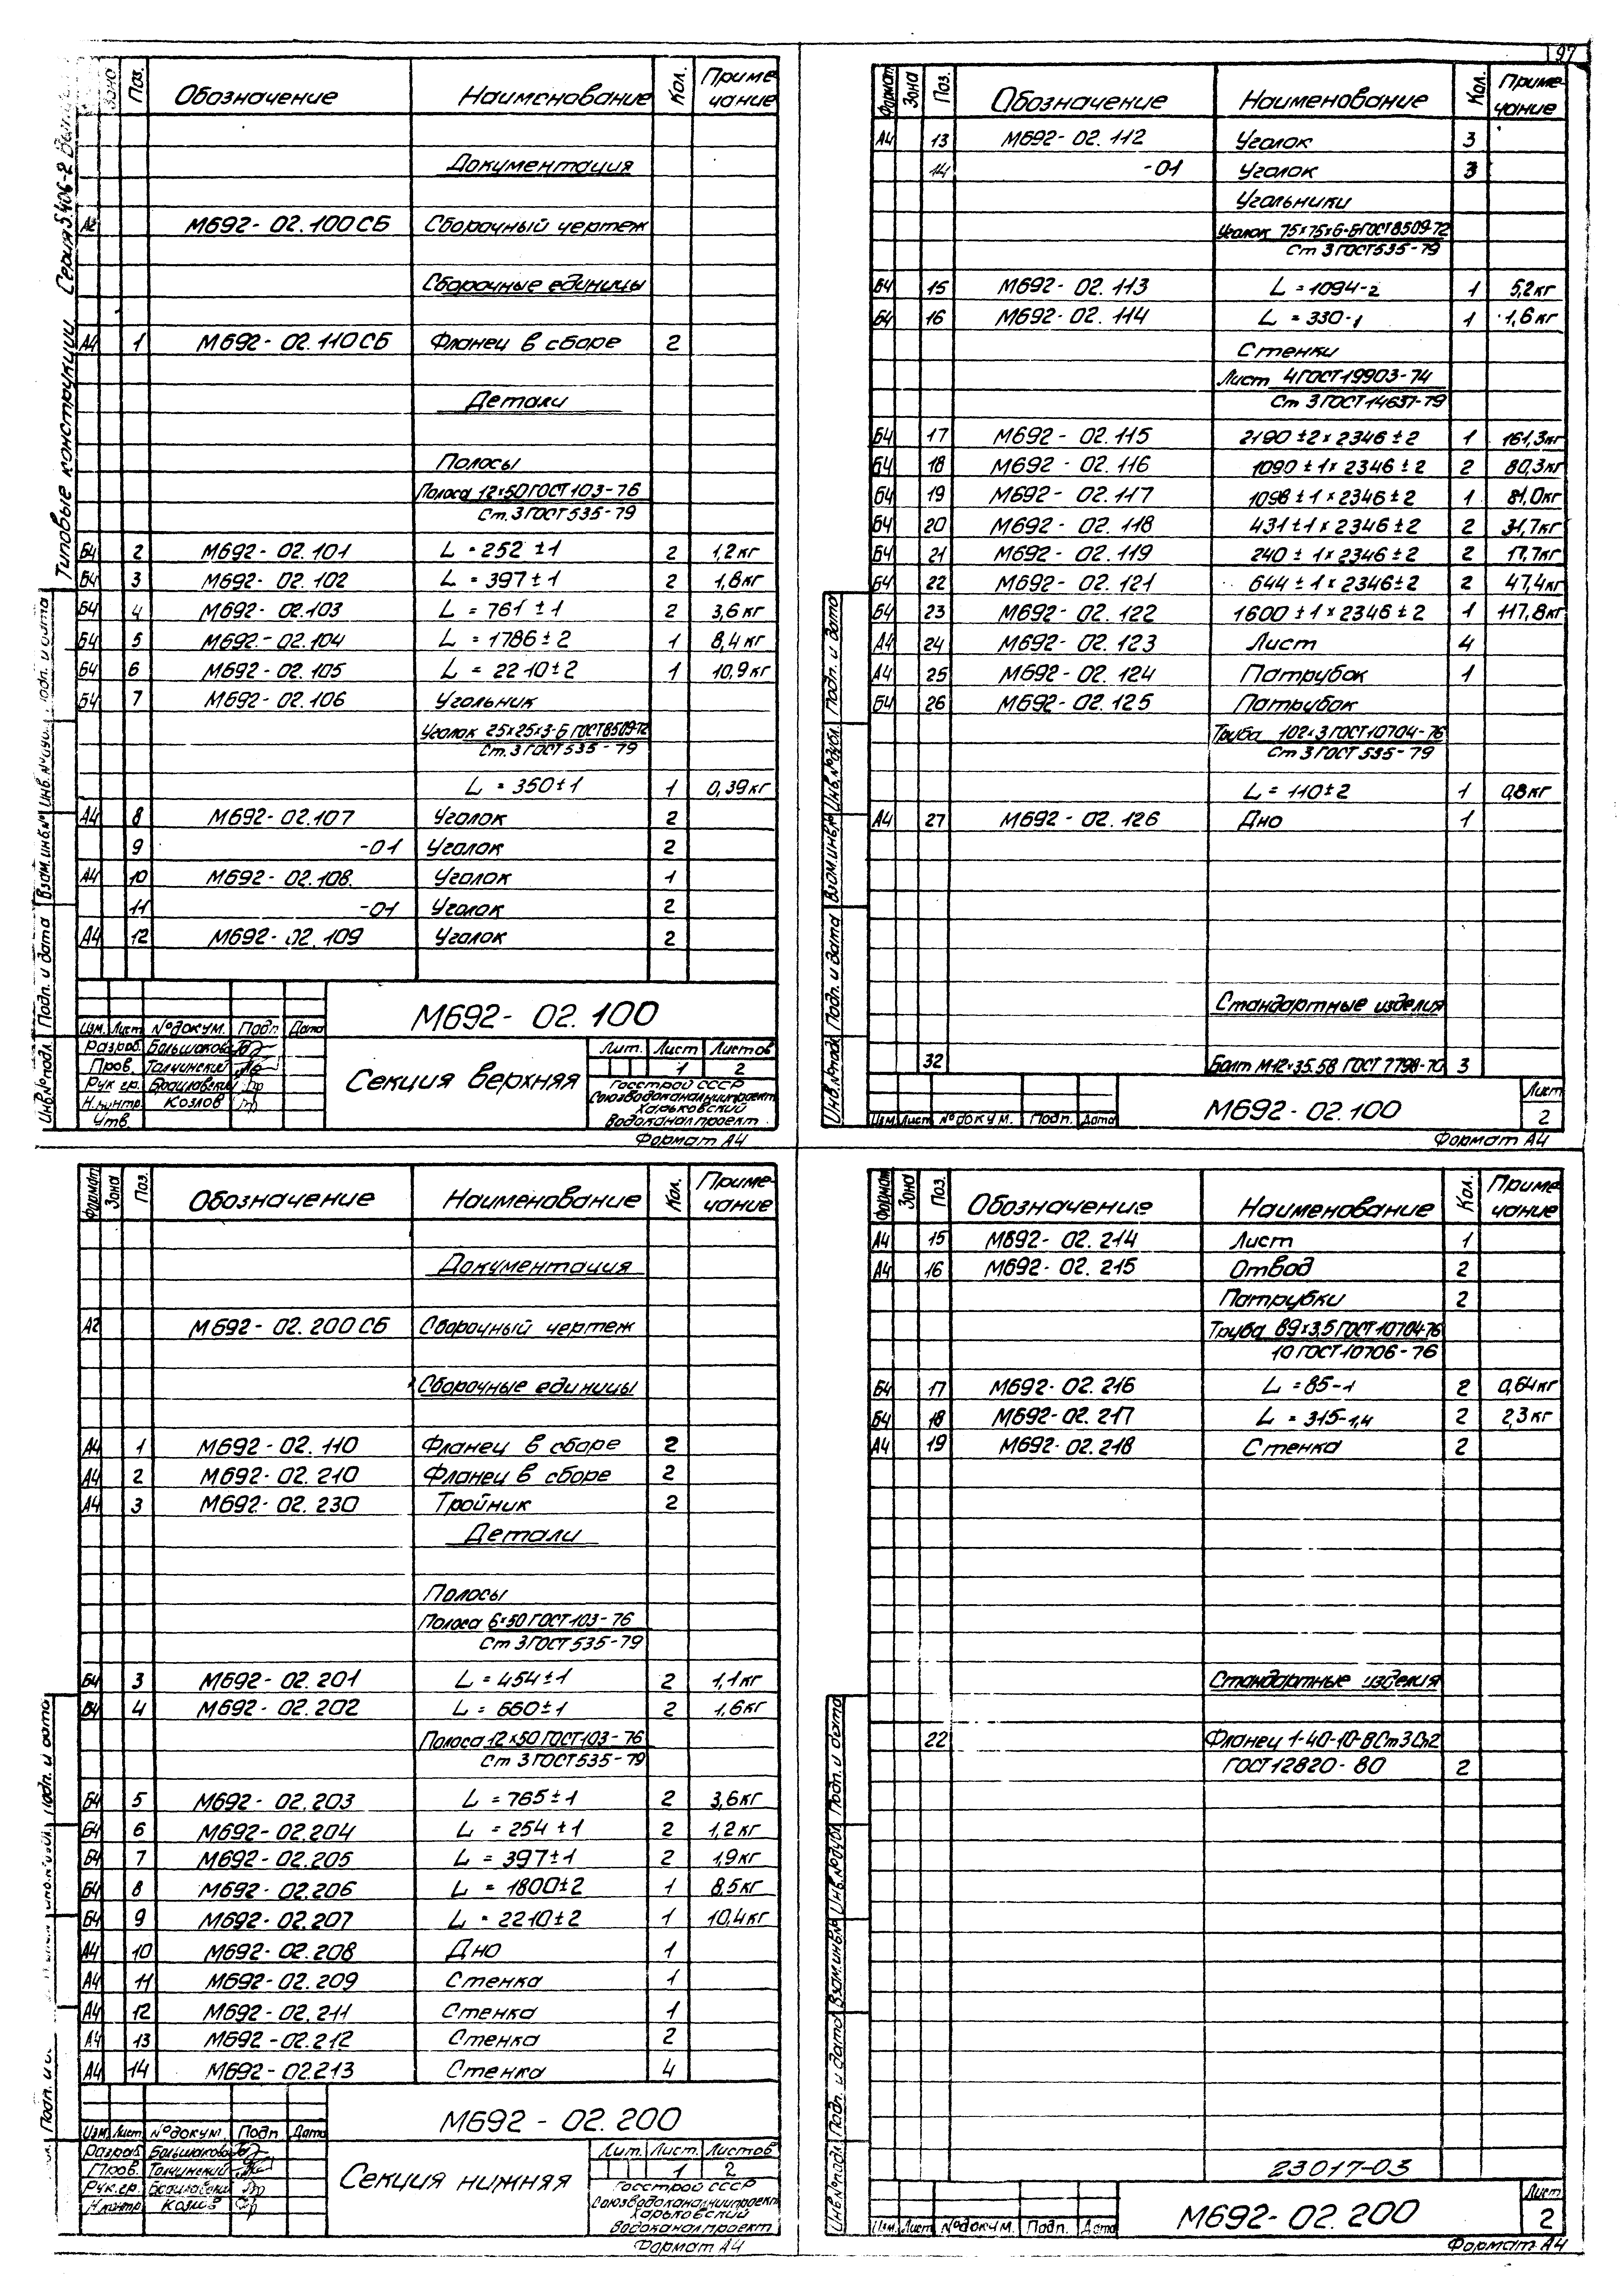 97
Типовые конструкции Серия 5.406-2
Зона Поз. Обозначение Наименование Кол. Примечание
Документация
А2 М692-02.100СБ Сборочный чертеж
Сборочные единицы
А4 1 М692-02.110СБ Фланец в сборе 2
Детали
Полосы
Полоса 12×50 ГОСТ 103-76
Ст. 3 ГОСТ 535-79
Б4 2 М692-02.101 L = 252 ±1 2 1,2кг
Б4 3 М692-02.102 L = 397±1 2 1,8кг
Б4 4 М692-02.103 L = 761 ±1 2 3,6кг
Б4 5 М692-02.104 L = 1786±2 1 8,4кг
Б4 6 М692-02.105 L = 2210±2 1 10,9кг
Б4 7 М692-02.106 Угольник
Уголок 25×25×3-Б ГОСТ 8509-72
Ст. 3 ГОСТ 535-79
L = 350±1 1 0,39кг
А4 8 М692-02.107 Уголок 2
9 -01 Уголок 2
А4 10 М692-02.108. Уголок 1
11 -01 Уголок 2
А4 12 М692-02.109 Уголок 2
Инв.№подл. Подп. и дата Взам.инв.№ Инв.№дубл. Подп. и дата
М692-02.100
Изм. Лист №докум. Подп. Дата
Разраб. Большакова
Пров. Толчинский
Рук гр. Брацлавский
Н.контр. Козлов
Утв.
Секция верхняя
Лит. Лист Листов
1 2
Госстрой СССР
Союзводоканалниипроект
Харьковский
Водоканалпроект
Формат А4
Формат Зона Поз. Обозначение Наименование Кол. Примечание
А4 13 М692-02.112 Уголок 3
14 -01 Уголок 3
Угольники
Уголок 75×75×6-Б ГОСТ 8509-72
Ст 3 ГОСТ 535-79
Б4 15 М692-02.113 L = 1094-2 1 5,2кг
Б4 16 М692-02.114 L = 330-1 1 1,6кг
Стенки
Лист 4 ГОСТ 19903-74
Ст 3 ГОСТ 14637-79
Б4 17 М692-02.115 2190 ±2 × 2346 ±2 1 161,3кг
Б4 18 М692-02.116 1090 ±1 × 2346 ±2 2 80,3кг
Б4 19 М692-02.117 1098 ±1 × 2346 ±2 1 81,0кг
Б4 20 М692-02.118 431 ±1 × 2346 ±2 2 31,7кг
Б4 21 М692-02.119 240 ± 1×2346 ±2 2 17,7кг
Б4 22 М692-02.121 644 ±1 × 2346±2 2 47,4кг
Б4 23 М692-02.122 1600 ±1 × 2346 ±2 1 117,8кг
А4 24 М692-02.123 Лист 4
А4 25 М692-02.124 Патрубок 1
Б4 26 М692-02.125 Патрубок
Труба 102×3 ГОСТ 10704-76
Ст 3 ГОСТ 535-79
L = 110±2 1 0,8кг
А4 27 М692-02.126 Дно 1
Стандартные изделия
32 Болт М12×35.58 ГОСТ 7798-70 3
Инв.№подл. Подп. и дата Взам.инв.№ Инв.№дубл. Подп. и дата
Изм. Лист №докум. Подп. Дата
М692-02.100
Лист
2
Формат А4
Формат Зона Поз. Обозначение Наименование Кол. Примечание
Документация
А2 М692-02.200СБ Сборочный чертеж
Сборочные единицы
А4 1 М692-02.110 Фланец в сборе 2
А4 2 М692-02.210 Фланец в сборе 2
А4 3 М692-02.230 Тройник 2
Детали
Полосы
Полоса 6×50 ГОСТ 103-76
Ст 3 ГОСТ 535-79
Б4 3 М692-02.201 L = 454±1 2 1,1кг
Б4 4 М692-02.202 L = 660±1 2 1,6кг
Полоса 12×50 ГОСТ 103-76
Ст 3 ГОСТ 535-79
Б4 5 М692-02.203 L = 765±1 2 3,6кг
Б4 6 М692-02.204 L = 254 ±1 2 1,2кг
Б4 7 М692-02.205 L = 397±1 2 1,9кг
Б4 8 М692-02.206 L = 1800±2 1 8,5кг
Б4 9 М692-02.207 L = 2210±2 1 10,4кг
А4 10 М692-02.208 Дно 1
А4 11 М692-02.209 Стенка 1
А4 12 М692-02.211 Стенка 1
А4 13 М692-02.212 Стенка 2
А4 14 М692-02.213 Стенка 4
М692-02.200
Изм. Лист №докум. Подп Дата
Разраб. Большакова
Пров. Толчинский
Рук.гр. Брацлавский
Н.контр. Козлов
Секция нижняя
Лит. Лист. Листов
1 2
Госстрой СССР
Союзводоканалниипроект
Харьковский
Водоканалпроект
Формат А4
Формат Зона Поз. Обозначение Наименование Кол. Примечание
А4 15 М692-02.214 Лист 1
А4 16 М692-02.215 Отвод 2
Патрубки 2
Труба 89×3,5 ГОСТ 10704-76
10 ГОСТ 10706-76
Б4 17 М692-02.216 L = 85-1 2 0,64кг
Б4 18 М692-02.217 L = 315-1,4 2 2,3кг
А4 19 М692-02.218 Стенка 2
Стандартные изделия
22 Фланец 1-40-10-ВСт3Сп2
ГОСТ 12820-80 2
23017-03
Инв.№подл. Подп. и дата Взам.инв.№ Инв.№дубл. Подп. и дата
Изм. Лист №докум. Подп. Дата
М692-02.200
Лист
2
Формат А4